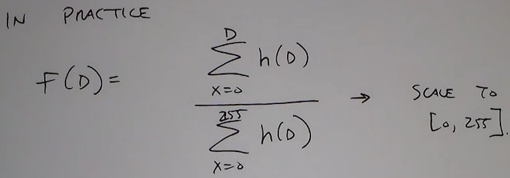 IN PRACTICE
F(D) = \frac{\sum_{x=0}^{D} h(D)}{\sum_{x=0}^{255} h(D)} → SCALE TO
[0, 255].